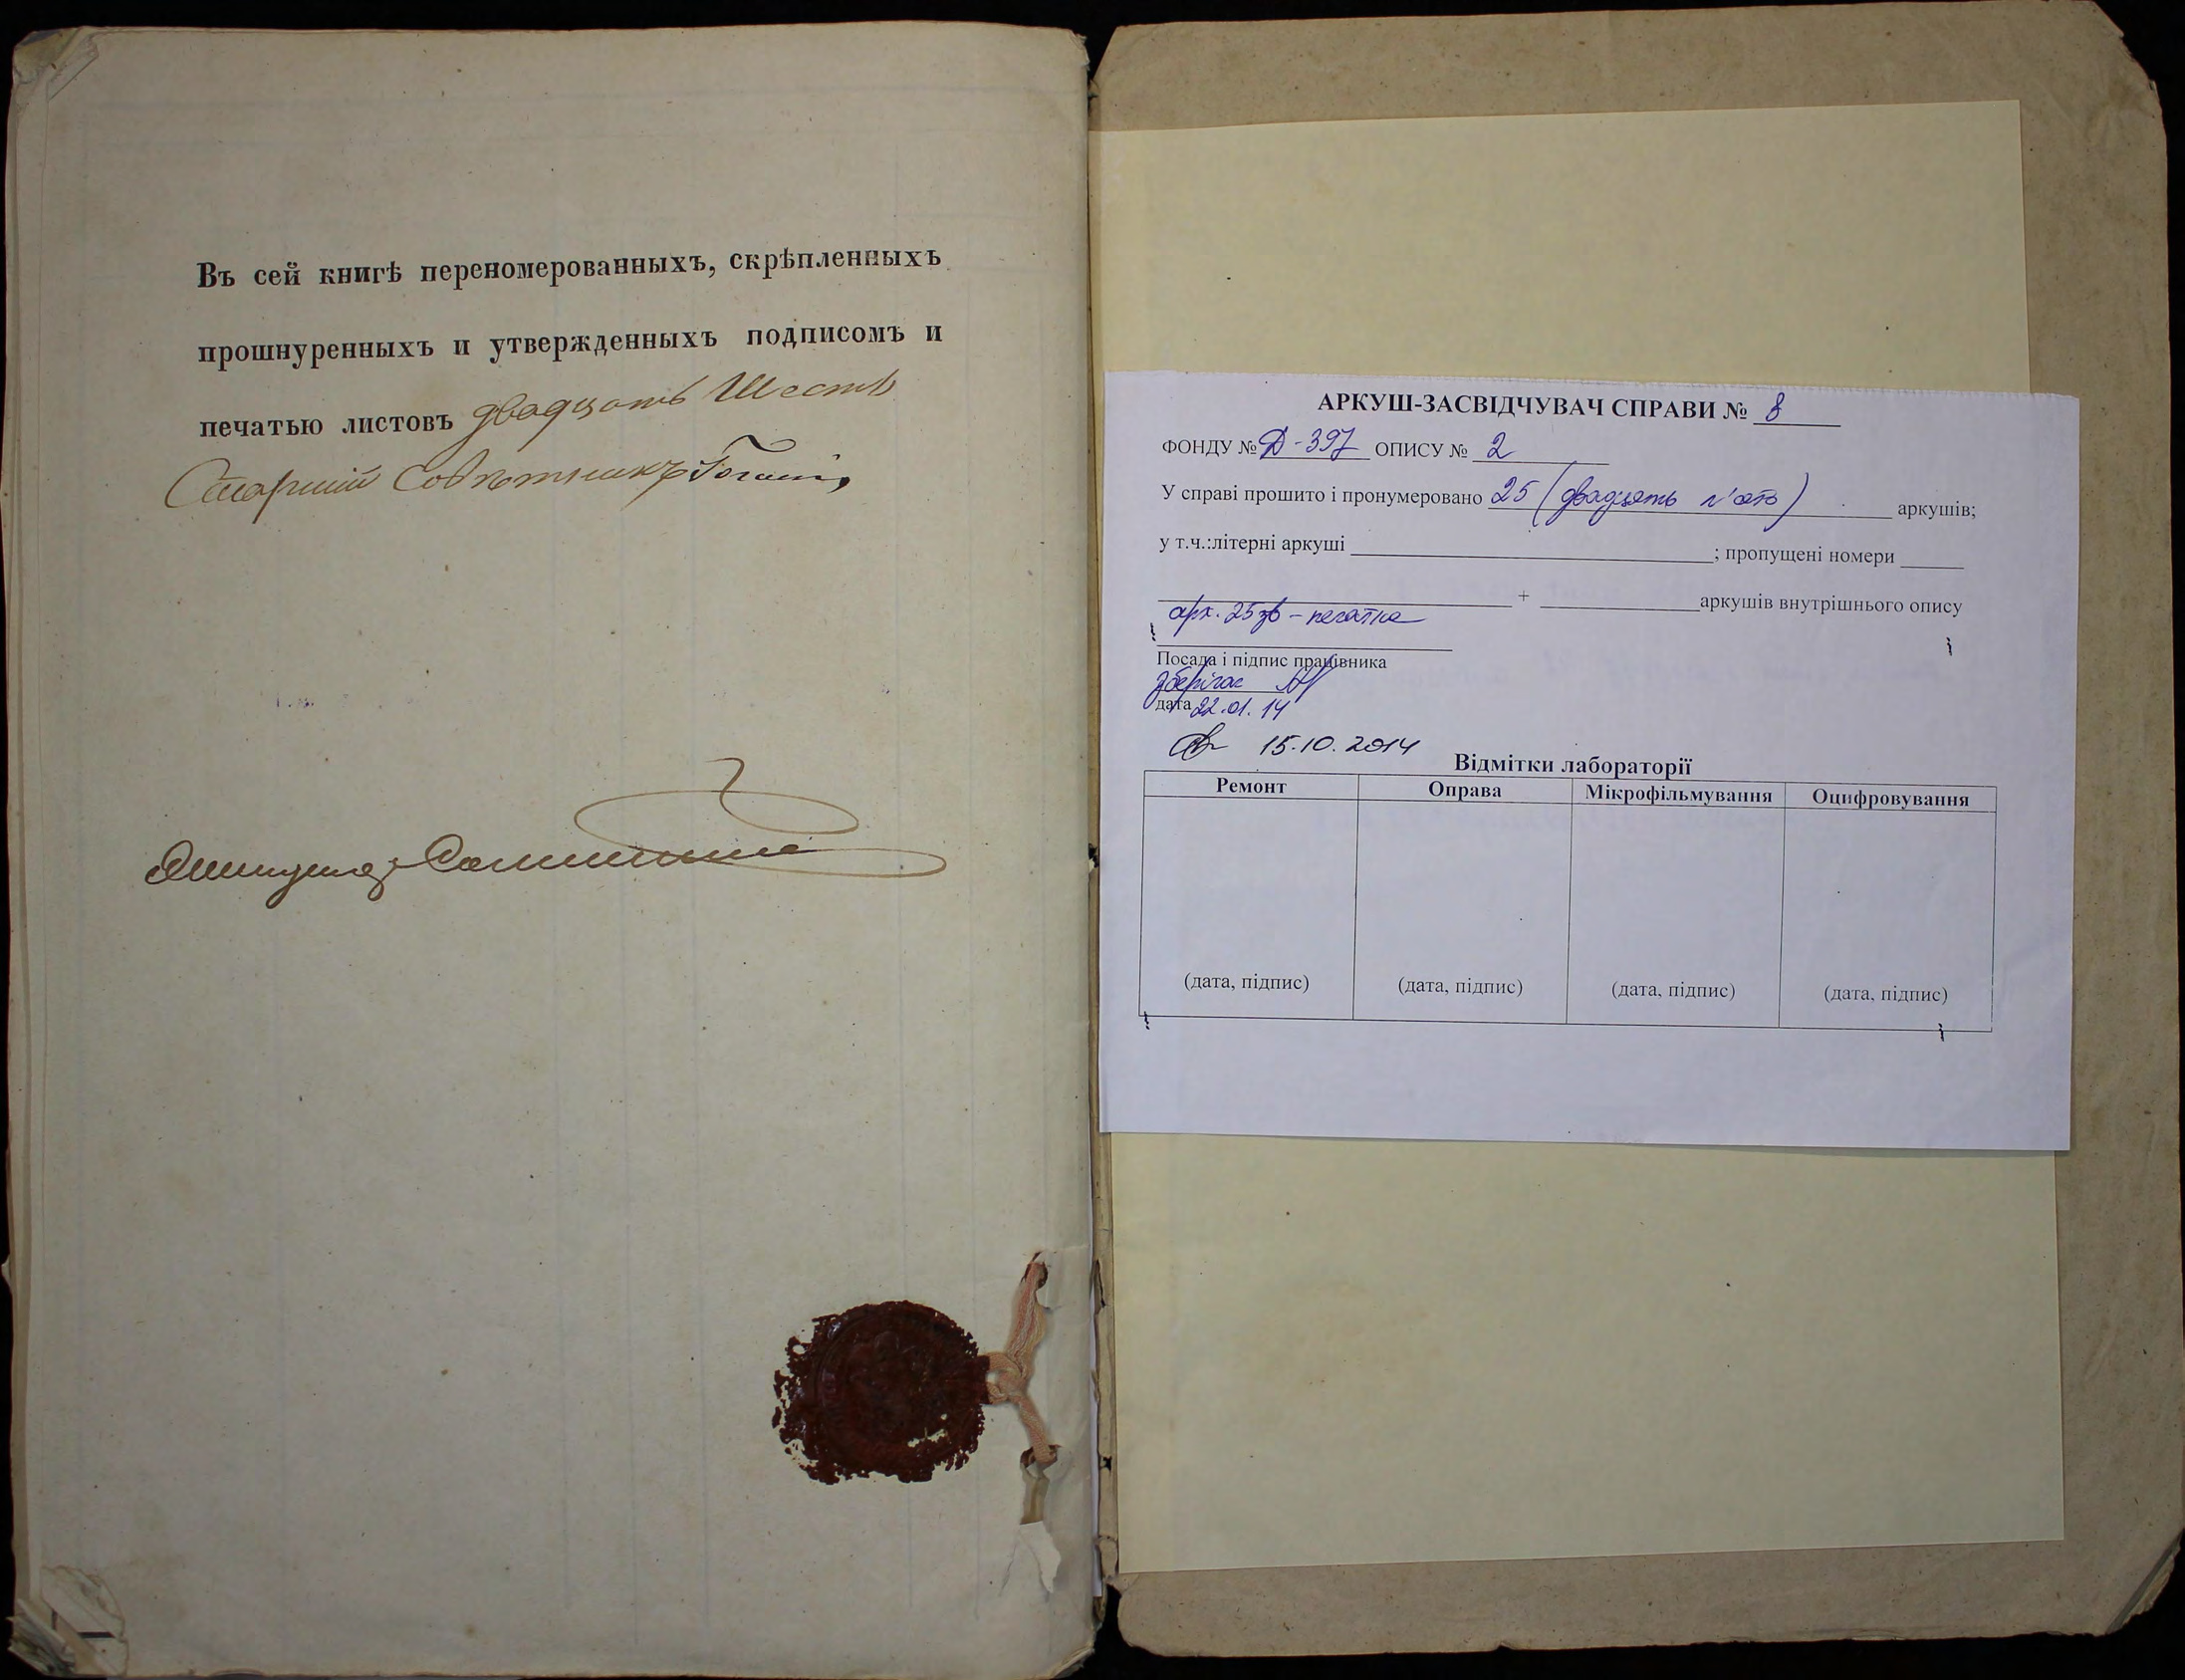 Въ сей книгѣ переномерованныхъ, скрѣпленныхъ
прошнуренныхъ и утвержденныхъ подписомъ и
печатью листовъ двадцать Шесть
Старшій Совѣтникъ
АРКУШ-ЗАСВІДЧУВАЧ СПРАВИ № 8
ФОНДУ № Д-397 ОПИСУ № 2
У справі прошито і пронумеровано 25 (двадцять п'ять) аркушів;
у т.ч.:літерні аркуші ; пропущені номери
+ аркушів внутрішнього опису
арк. 25зв - печатка
Посада і підпис працівника
зберігач
дата 22.01.14
15.10.2014
Відмітки лабораторії
Ремонт Оправа Мікрофільмування Оцифровування
(дата, підпис) (дата, підпис) (дата, підпис) (дата, підпис)